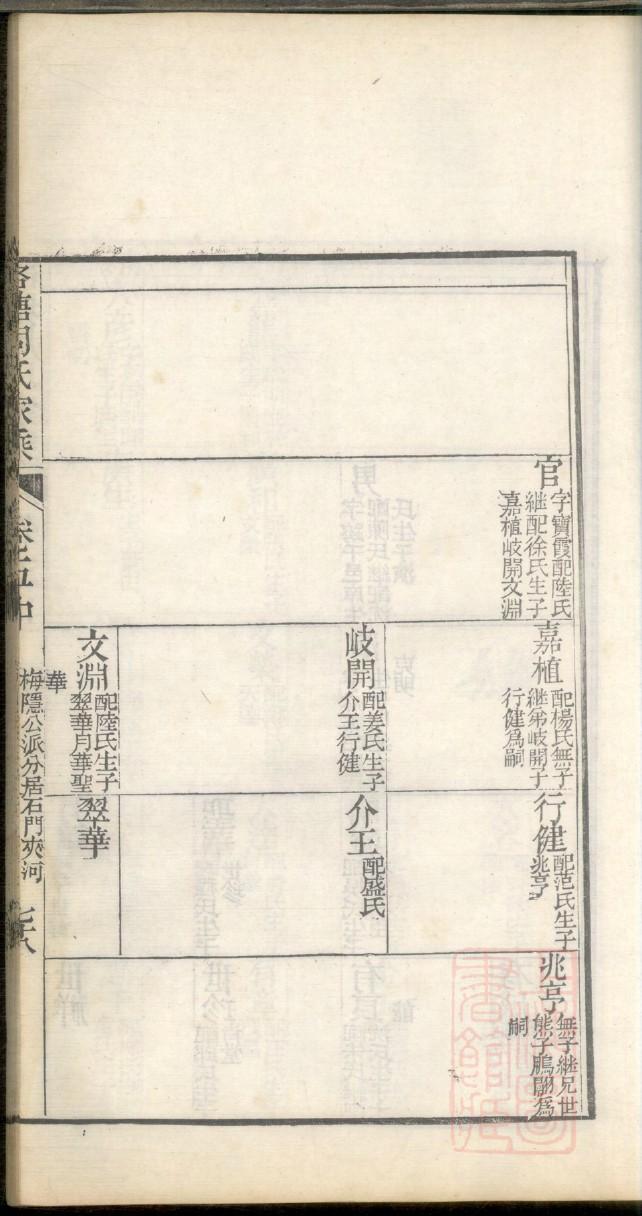 官
字寶霞配陸氏
継配徐氏生子
嘉植岐開文淵
嘉植
配楊氏無子
継弟岐開子
行健爲嗣
行健
配范氏生子
兆亨
兆亨
無子継兄世
熊子鵬翮爲
嗣
岐開
配姜氏生子
介王行健
介王
配盛氏
文淵
配陸氏生子
翠華月華聖
華
翠華
塘周氏家乘
卷五中
梅隱公派分居石門夾河